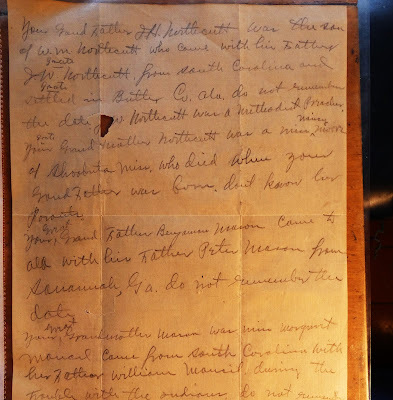 Your Grand Father J H. Northcutt was the son
of W.M Northcutt who came with his Father
great
J.W Northcutt, from South Carolina and
great
settled in Butler Co. Ala, do not remember
the date J W Northcutt was a Methodist Preacher,
great
Your Grand Mother Northcutt was a miss
of Shubuta Miss, who died when your
Grand Father was born, dont know her
Parents
great
Your Grand Father Benjamin Mason Came to
ala with his Father Peter Mason from
Savannah, Ga. do not remember the
date
great
Your Grandmother Mason was miss Margaret
Mancil came from South Carolina with
her Father William Mancil, during the
trouble with the indians, do not remem